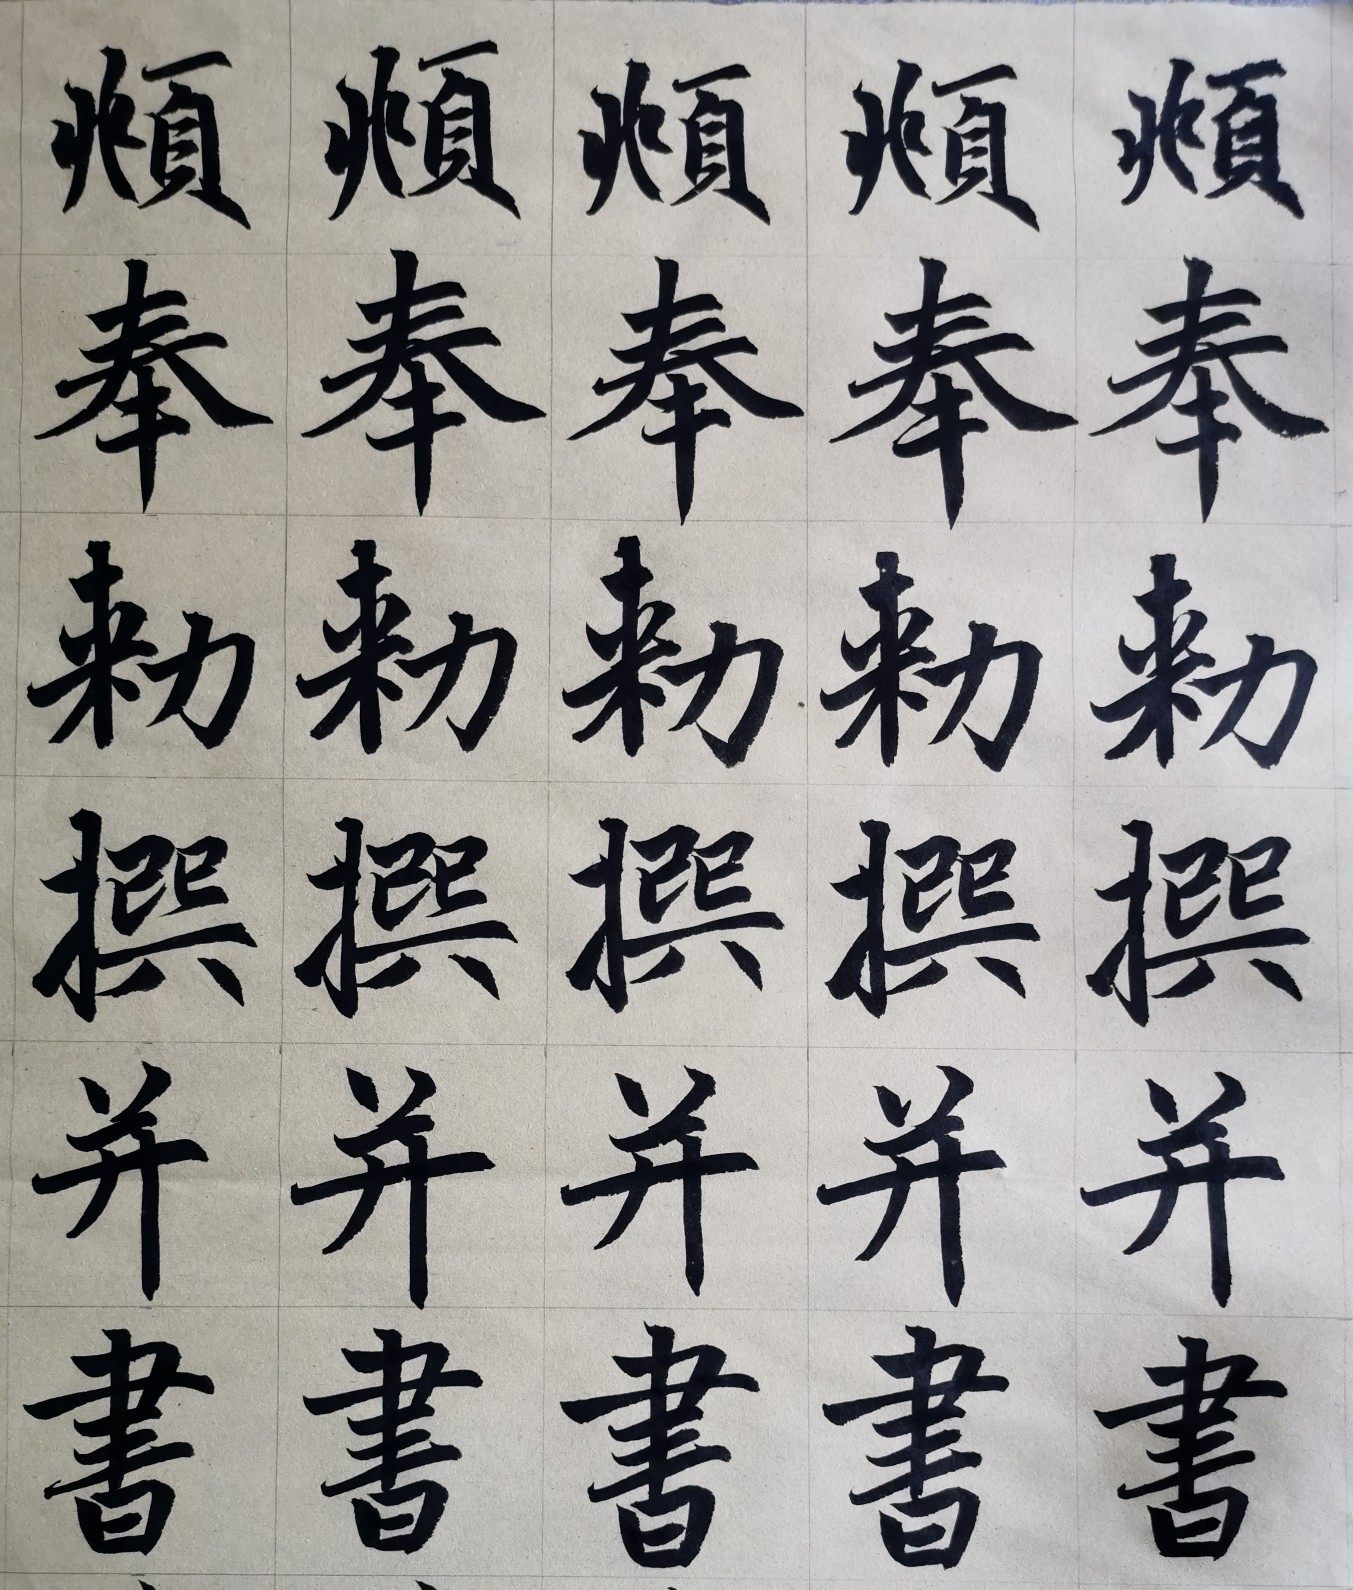 頫奉勑撰并書
頫奉勑撰并書
頫奉勑撰并書
頫奉勑撰并書
頫奉勑撰并書